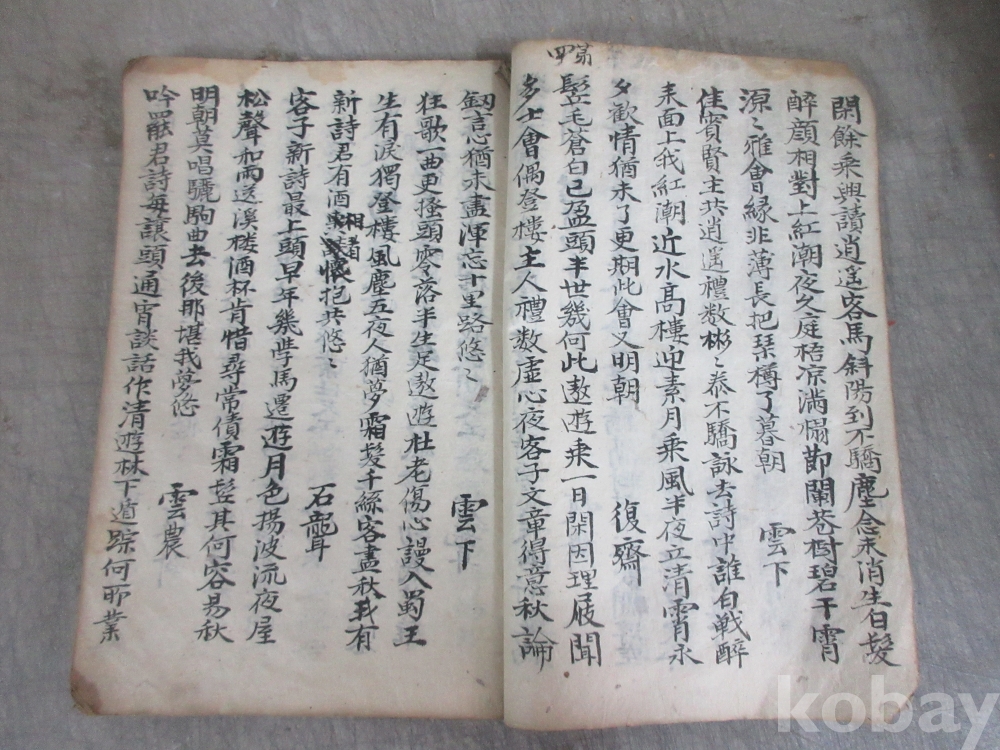 第四
閑餘乘興讀逍遙客馬斜陽到不驕塵念未消生白髮
醉顔相對上紅潮夜久庭梧凉滿榻節闌苍樹碧干霄
源〻雅會縁非薄長把琹樽了暮朝 雲下
佳賓賢主共逍遥禮数彬〻恭不驕詠去詩中誰白戦醉
来面上我紅潮近水高樓迎素月乘風半夜立清霄永
夕歡情猶未了更期此會又明朝 復齋
鬓毛蒼白已盈頭半世幾何此遨遊乗一日閑因理屐聞
多士會偶登樓主人禮數虚心夜客子文章得意秋論
釼志猶未盡渾忘十里路悠〻 雲下
狂歌一曲更搔頭零落半生足遨遊杜老傷心謾入蜀王
生有淚獨登樓風塵五夜人猶夢霜髮千絲客盡秋我有
新詩君有酒相懐抱共悠〻 石聾
客子新詩最上頭早年幾学馬遷遊月色揚波流夜屋
松聲和雨送溪楼酒杯肯惜尋常債霜髩其何容易秋
明朝莫唱驪駒曲去後那堪我夢悠 雲農
吟罷君詩每讓頭通宵談話作清遊林下遁踪何所業
kobay